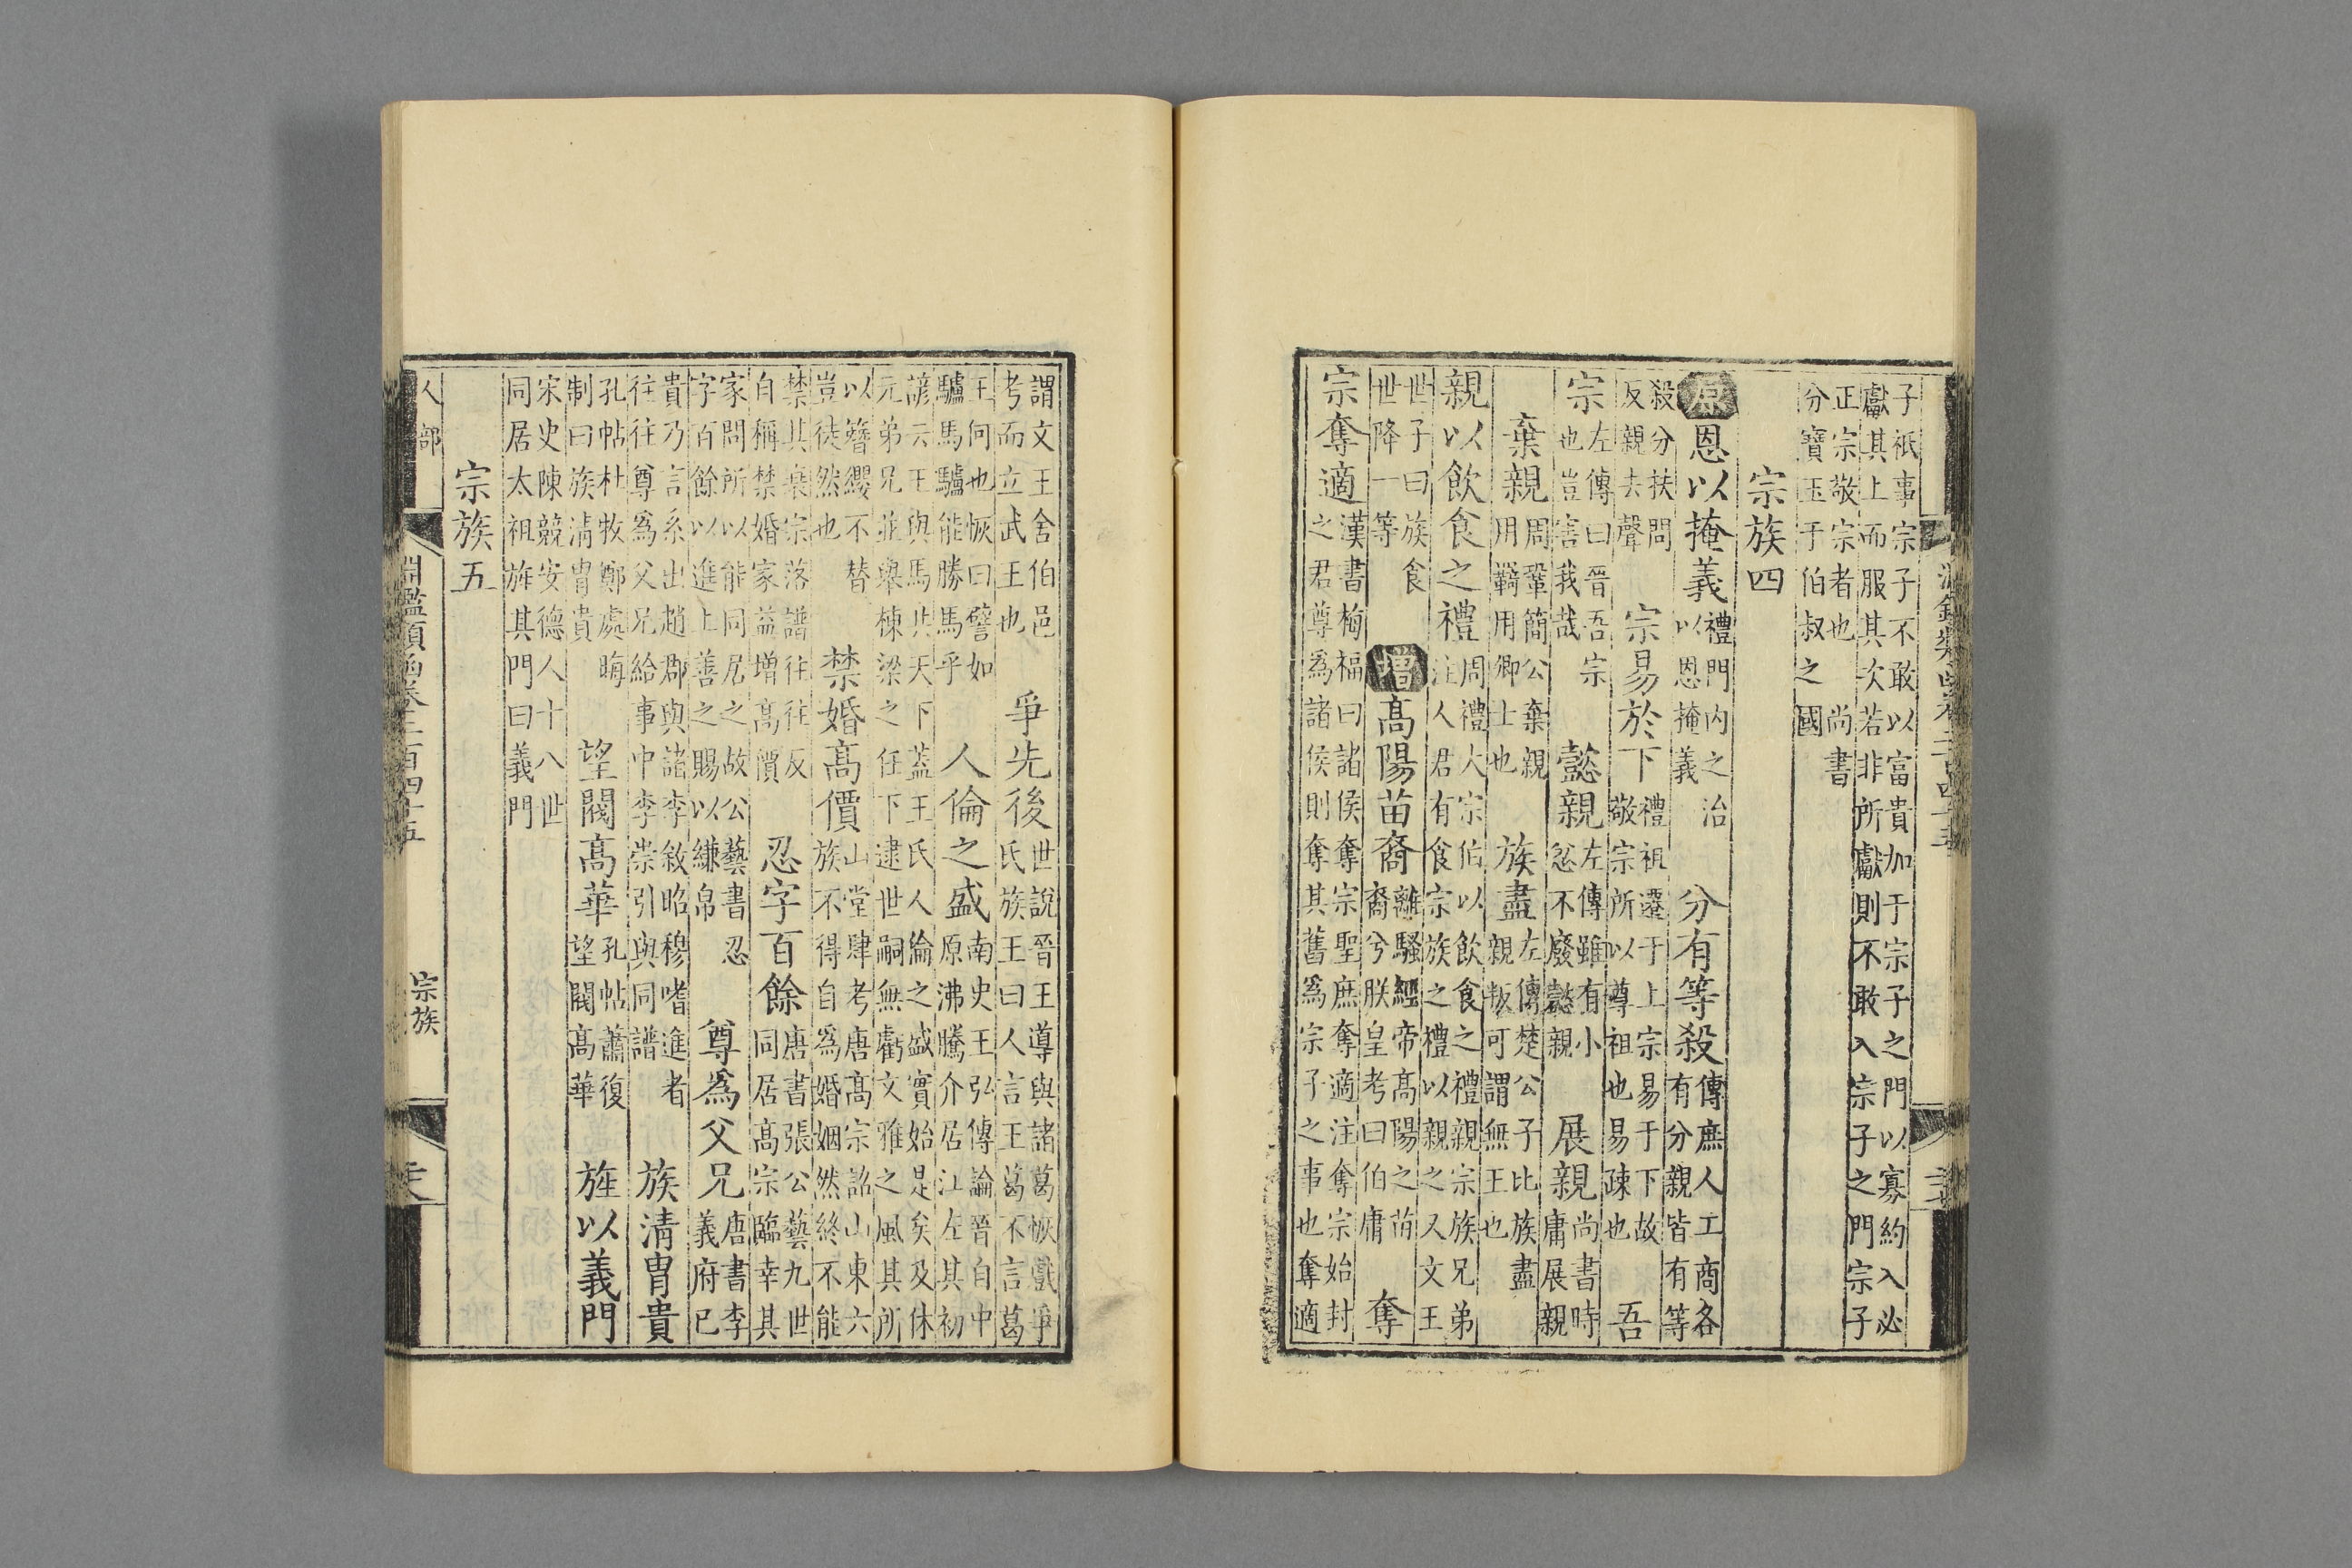 子祇事宗子不敢以富貴加于宗子之門以寡約入必
獻其上而服其次若非所獻則不敢入宗子之門宗子
正宗敬宗者也尚書
分寶玉于伯叔之國
宗族四
原恩以掩義禮門内之治以恩掩義 分有等殺傳庶人工商各有分親皆有等
殺分扶問反親去聲 宗易於下禮祖遷于上宗易于下故敬宗所以尊祖也易疎也 吾
宗左傳曰晉吾宗也豈害我哉 懿親左傳雖有小忿不廢懿親 展親尚書時庸展親
棄親周鞏簡公棄親用羈用卿士也 族盡左傳楚公子比族盡親叛可謂無王也
親以飲食之禮周禮大宗伯以飲食之禮親宗族兄弟注人君有食宗族之禮以親之又文王
世子曰族食世降一等 增高陽苗裔離騷經帝高陽之苗裔兮朕皇考曰伯庸 奪
宗奪適漢書梅福曰諸侯奪宗聖庶奪適注奪宗始封之君尊爲諸侯則奪其舊爲宗子之事也奪適
謂文王舍伯邑考而立武王也 爭先後世說晉王導與諸葛恢戲爭氏族王曰人言王葛不言葛
王何也恢曰譬如驢馬驢能勝馬乎 人倫之盛南史王弘傳論晉自中原沸騰介居江左其初
諺云王與馬共天下蓋王氏人倫之盛實始是矣及休元弟兄並舉棟梁之任下逮世嗣無虧文雅之風其所
以簪纓不替豈徒然也 禁婚高價山堂肆考唐高宗詔山東六族不得自爲婚姻然終不能
禁其衰宗落譜往往反自稱禁婚家益增高價 忍字百餘唐書張公藝九世同居高宗臨幸其
家問所以能同居之故公藝書忍字百餘以進上善之賜以縑帛 尊爲父兄唐書李義府已
貴乃言系出趙郡與諸李敘昭穆嗜進者往往尊爲父兄給事中李崇引與同譜 族清冑貴
孔帖杜牧鄭處晦制曰族清冑貴 望閥高華孔帖蕭復望閥高華 旌以義門
宋史陳競安德人十八世同居太祖旌其門曰義門
宗族五
人部 淵鑑類函卷二百四十五 宗族